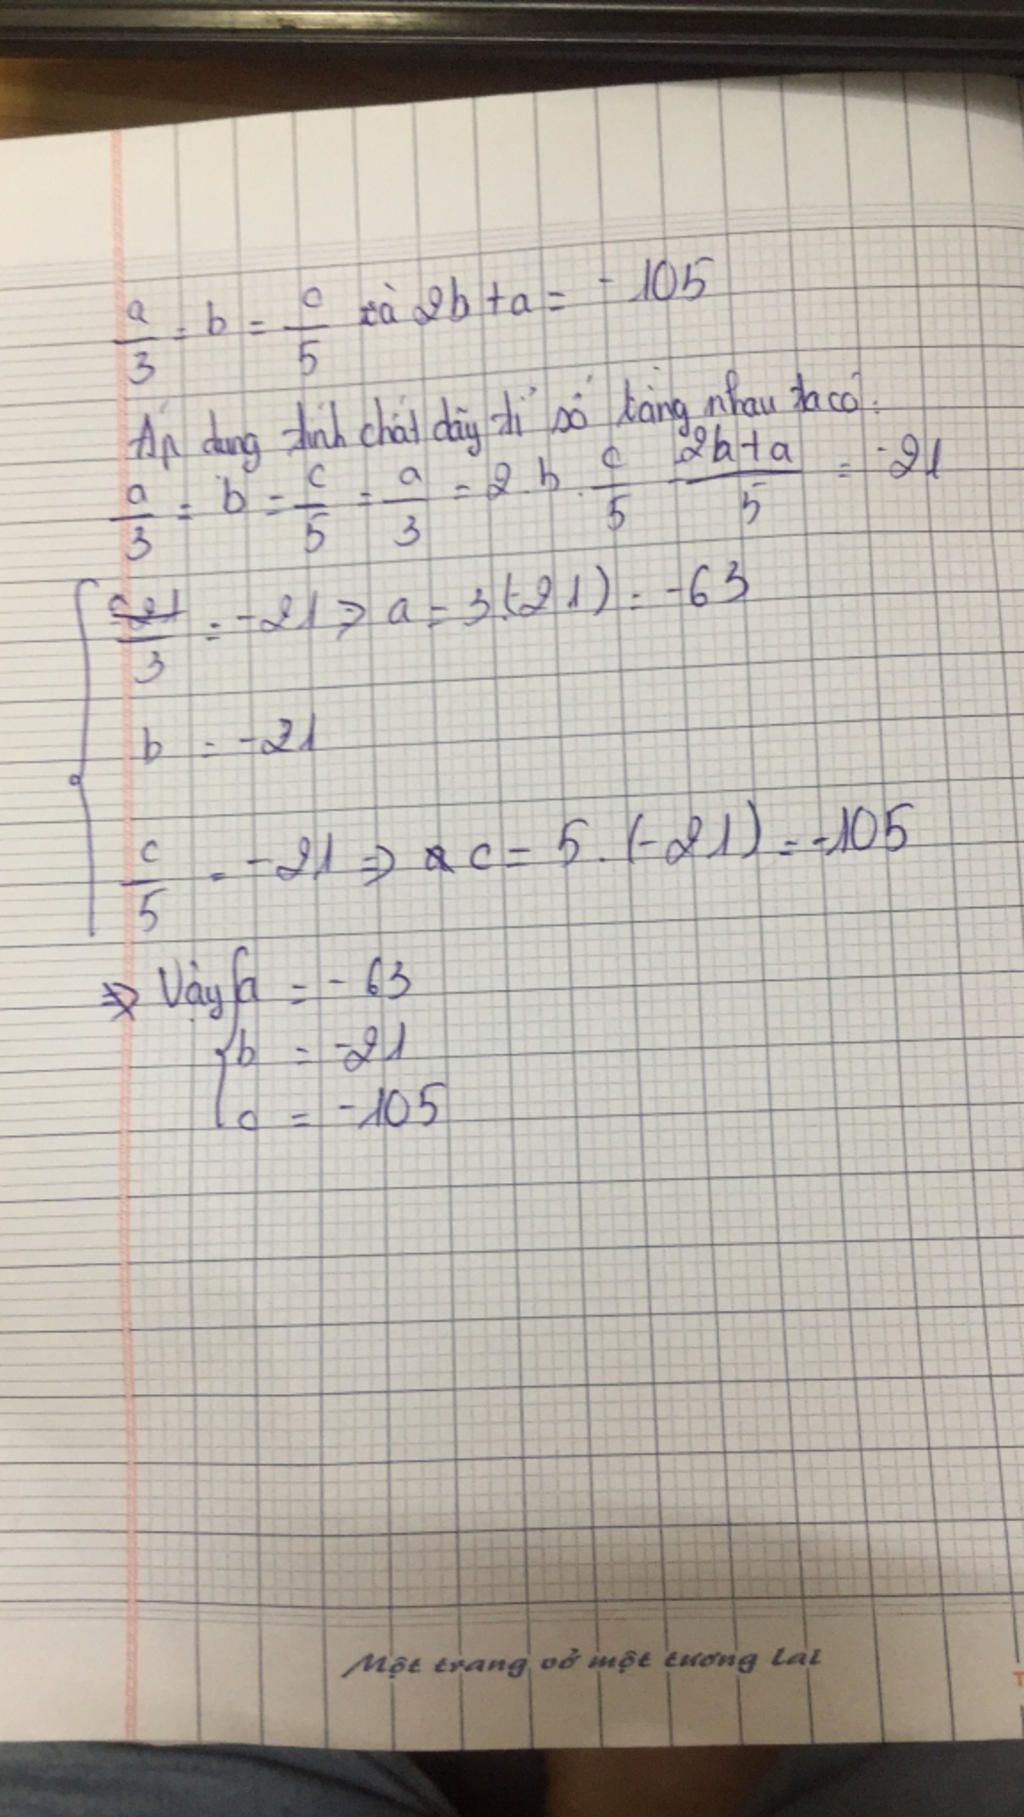 a/3 = b = c/5 và 2b + a = -105
Áp dụng tính chất dãy tỉ số bằng nhau ta có:
a/3 = b = c/5 = a/3 = 2.b.c/5 (2b+a)/5 = -21
/3 = -21 => a = 3.(-21) = -63
b = -21
c/5 = -21 => c = 5.(-21) = -105
=> Vậy a = -63
b = -21
c = -105
Một trang vở một tương lai